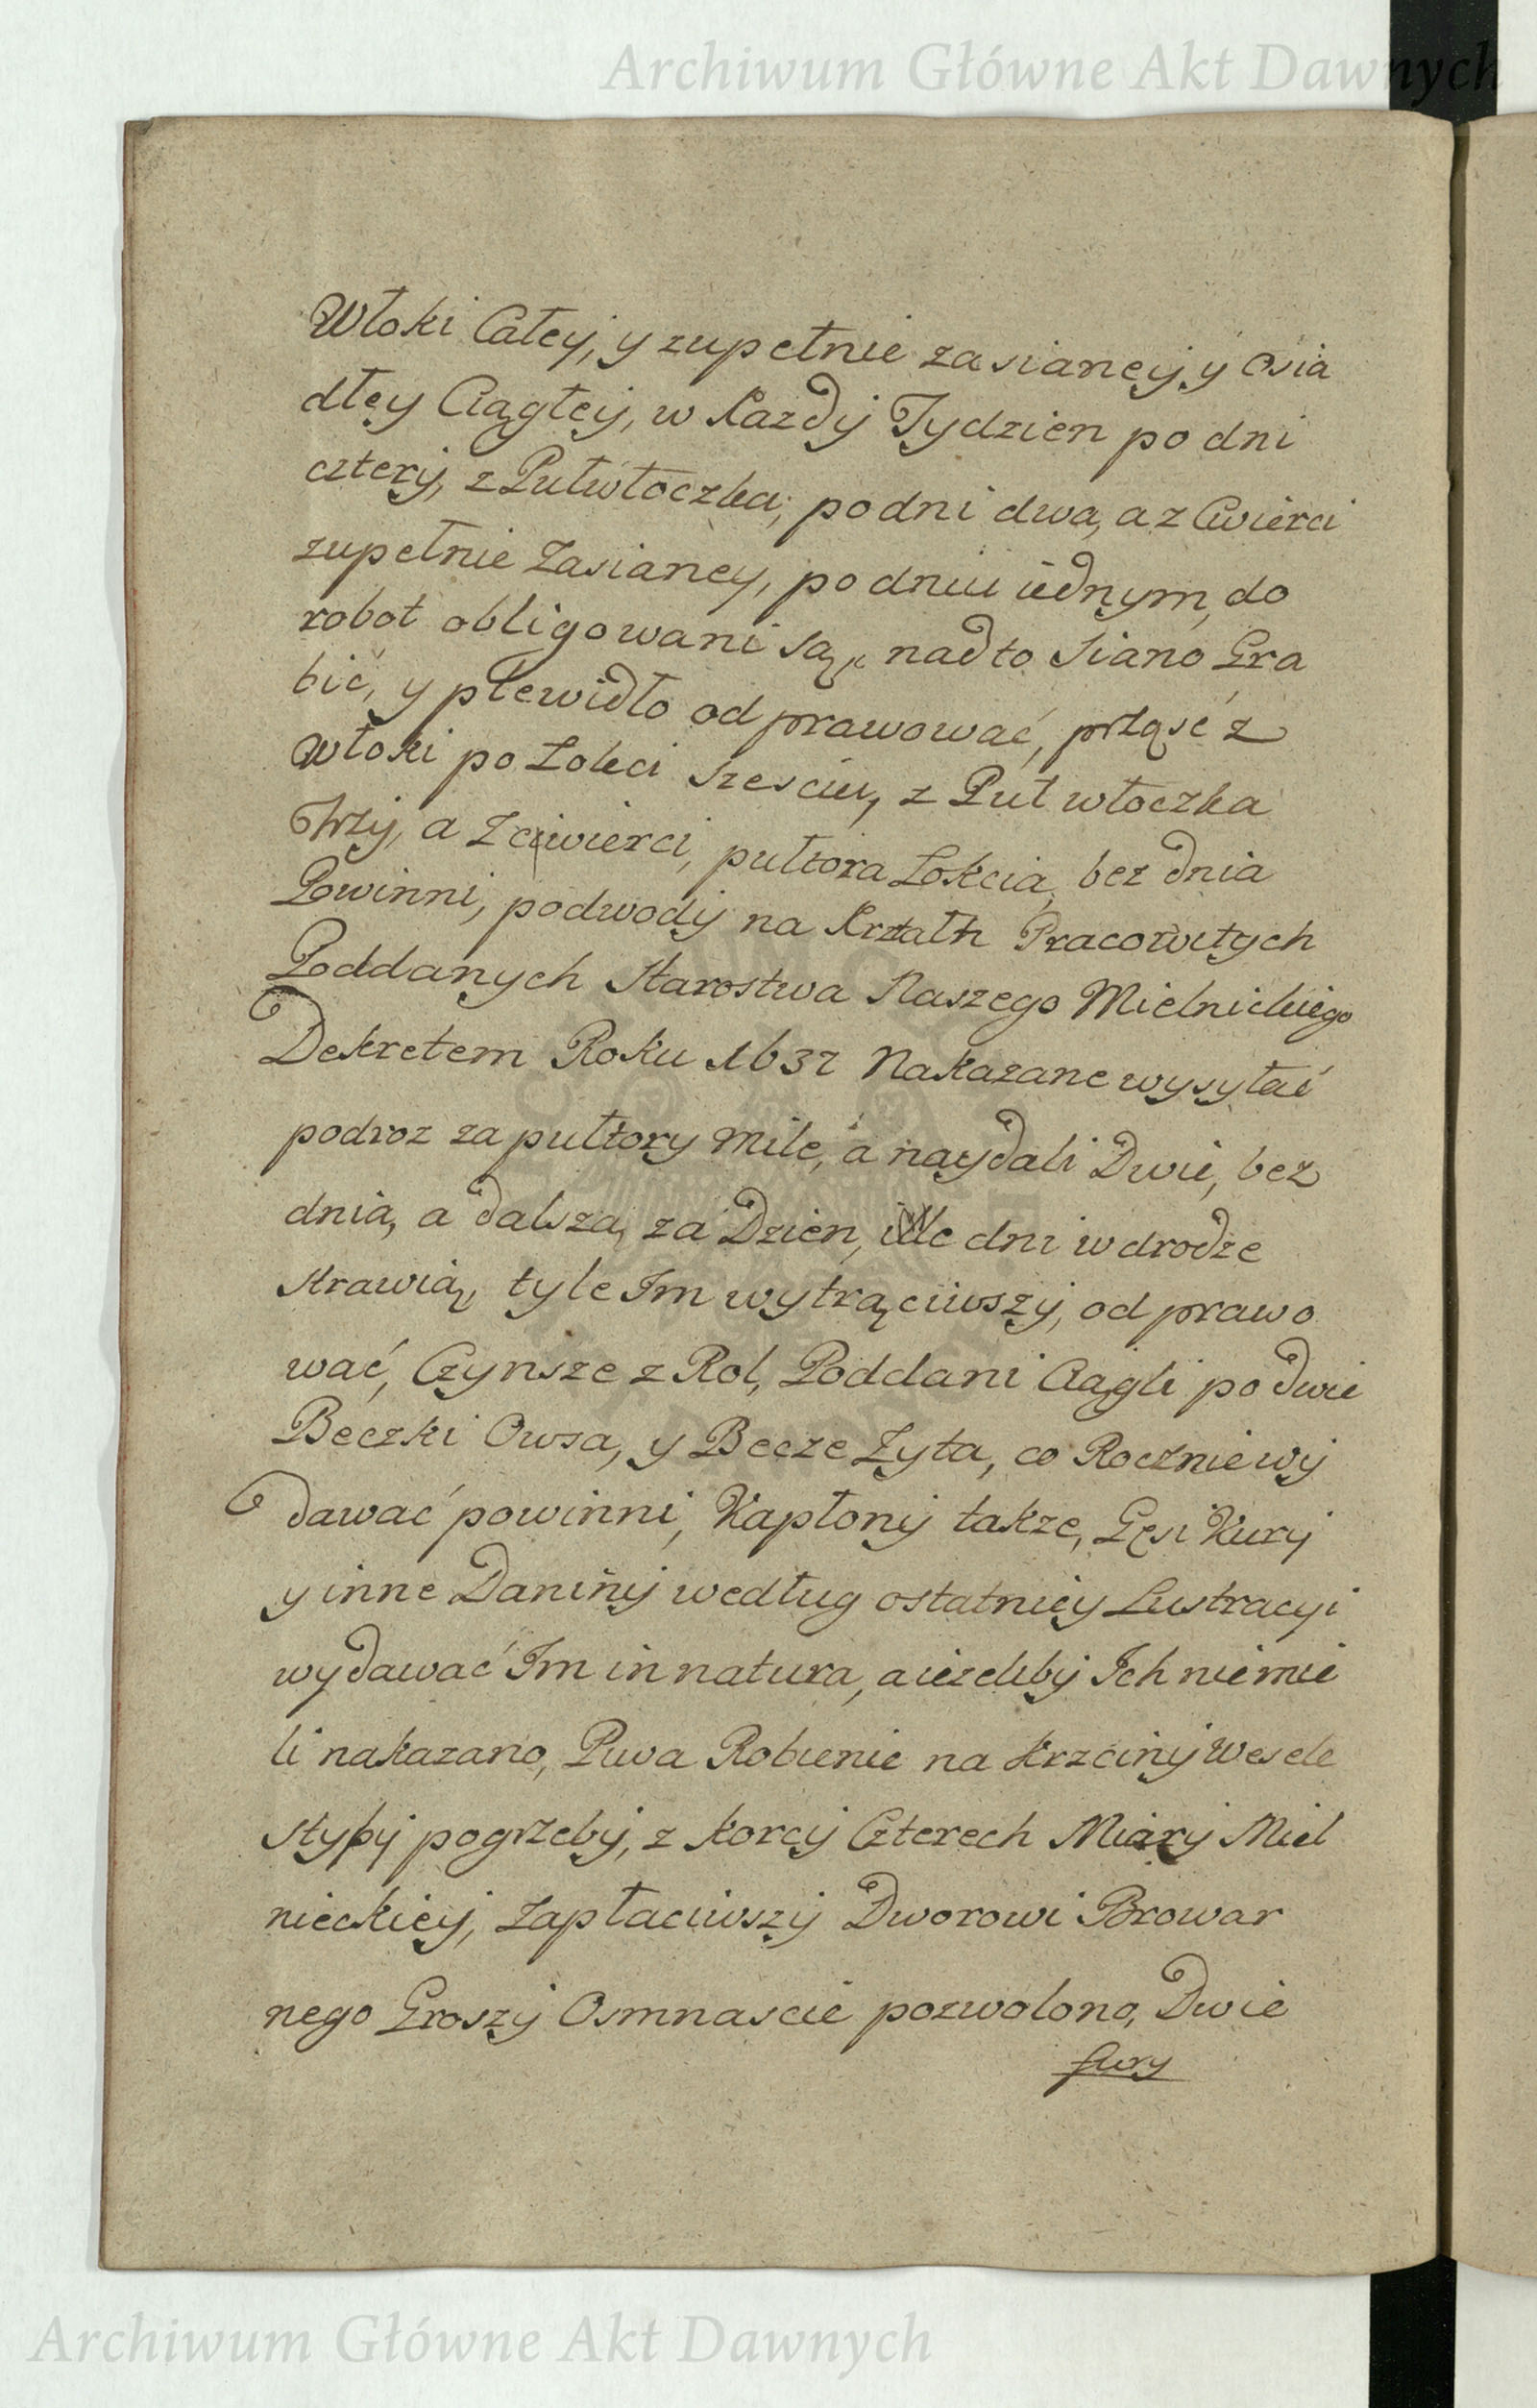 Archiwum Główne Akt Dawnych
Włoki Całey, y zupełnie zasianey, y Osia
dłey Ciągłey, w Kazdy Tydzien po dni
cztery, z Pułwłoczka, po dni dwa, a z Cwierci
zupełnie Zasianey, po dniu iednym, do
robot obligowani są, nadto Siano Gra
bić, y plewidło odprawować, prząść z
Włoki po Łokci szesciu, z Puł włoczka
Trzy, a z cwierci, pułtora Łokcia, bez dnia
Powinni, podwody na Krztałt Pracowitych
Poddanych Starostwa Naszego Mielnickiego
Dekretem Roku 1637 Nakazane wysyłać
podroz za pułtory mile, a naydali Dwie, bez
dnia, a dalszą, za Dzien, ile dni w drodze
strawią, tyle Im wytrąciwszy, odprawo
wać, Czynsze z Rol, Poddani Ciągli po dwie
Beczki Owsa, y Becze Zyta, co Rocznie wy
dawać powinni, Kapłony takze, Gęsi Kury
y inne Daniny według ostatniey Lustracyi
wydawać Im in natura, a iezeliby Ich niemie
li nakazano, Piwa Robienie na Krzciny Wesele
stypy pogrzeby, z Korcy Czterech Miary Miel
nieckiey, zapłaciwszy Dworowi Browar
nego Groszy Osmnascie pozwolono, Dwie
fury
Archiwum Główne Akt Dawnych